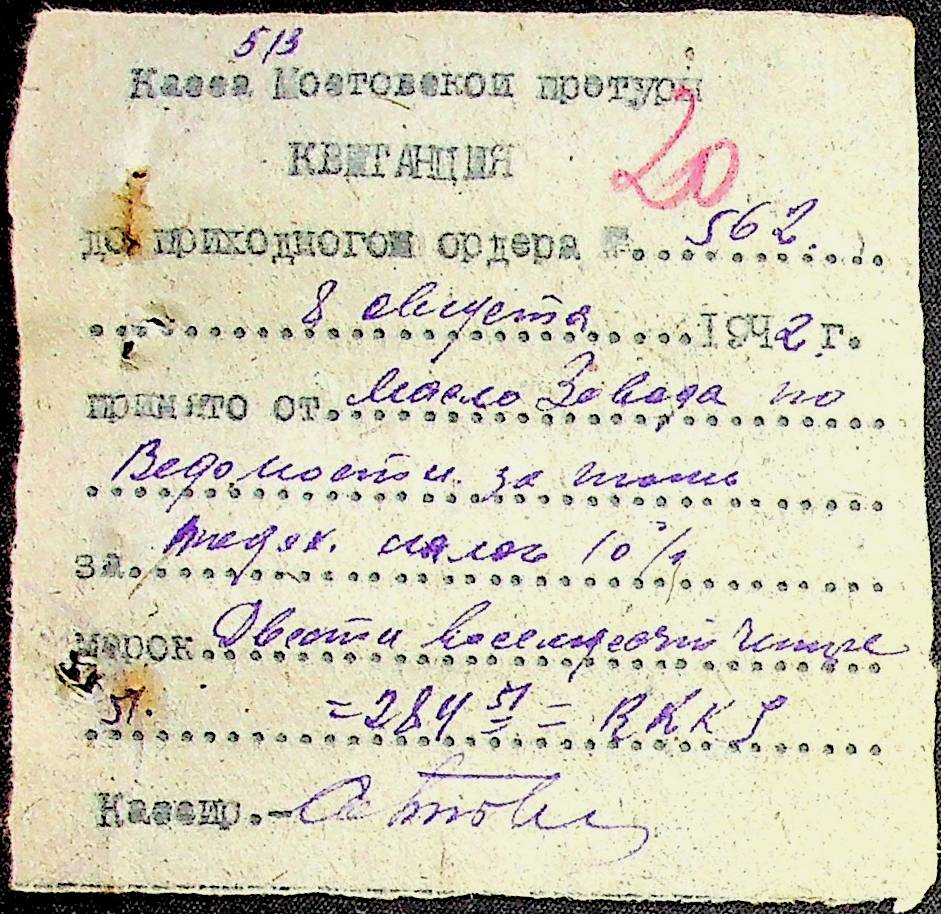 513
Касса Мостовской претуры
20
КВИТАНЦИЯ
до приходного ордера №. 562.
8 августа 1942 г.
принято от Масло Завода по
Ведомости за июнь
за подох. налог 10%
марок Двести восемдесят четыре
51. =284 51 = RKKS
Кассир.-